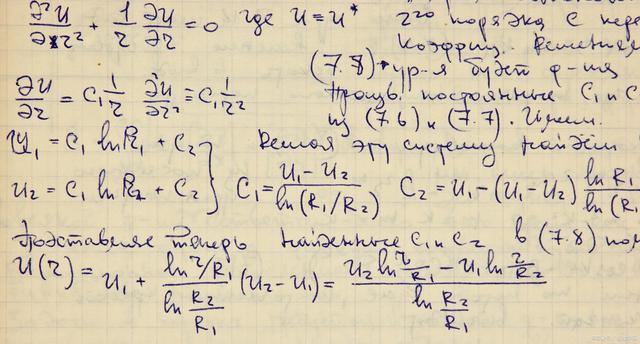 ∂²u/∂r² + 1/r ∂u/∂r = 0 где u = u* 2го порядка с пере
коэффиц. Решением
(7.8) ур-я будет ф-ия
∂u/∂r = C₁ 1/r ∂²u/∂r² = C₁ 1/r² Произв. постоянные C₁ и C
из (7.6) и (7.7). Имеем.
u₁ = C₁ ln R₁ + C₂ Решая эту систему найдём
u₂ = C₁ ln R₂ + C₂ C₁ = (u₁ - u₂)/ln(R₁/R₂) C₂ = u₁ - (u₁ - u₂) ln R₁/ln(R₁
Подставляя теперь найденные C₁ и C₂ в (7.8) пол
u(r) = u₁ + (ln r/R₁)/(ln R₂/R₁) (u₂ - u₁) = (u₂ ln r/R₁ - u₁ ln r/R₂)/(ln R₂/R₁)